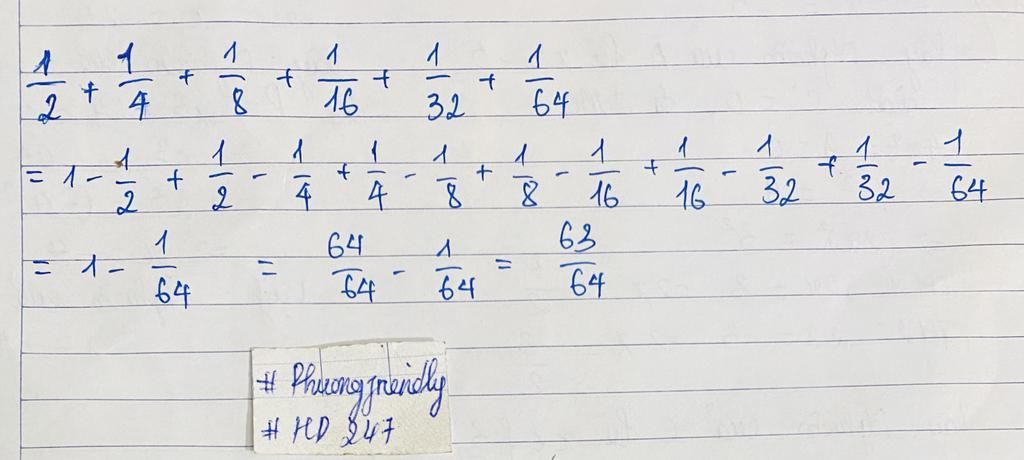 1/2 + 1/4 + 1/8 + 1/16 + 1/32 + 1/64
= 1 - 1/2 + 1/2 - 1/4 + 1/4 - 1/8 + 1/8 - 1/16 + 1/16 - 1/32 + 1/32 - 1/64
= 1 - 1/64 = 64/64 - 1/64 = 63/64
# Phuongfriendly
# HD 247